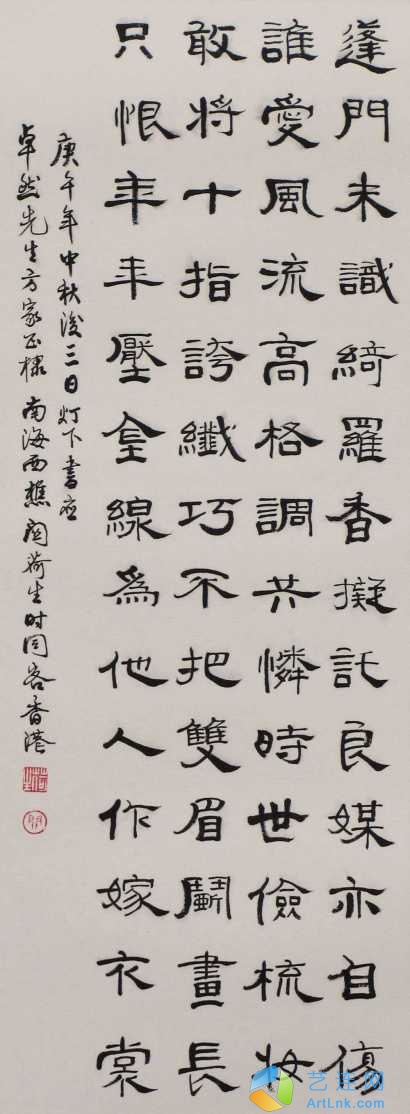 蓬門未識綺羅香擬託良媒亦自傷
誰愛風流高格調共憐時世儉梳妝
敢将十指誇纖巧不把雙眉鬭畫長
只恨年年壓金線為他人作嫁衣裳
庚午年中秋後三日灯下書应
卓然先生方家正 南海西樵関荷生时同客香港
艺连网
ArtLnk.com